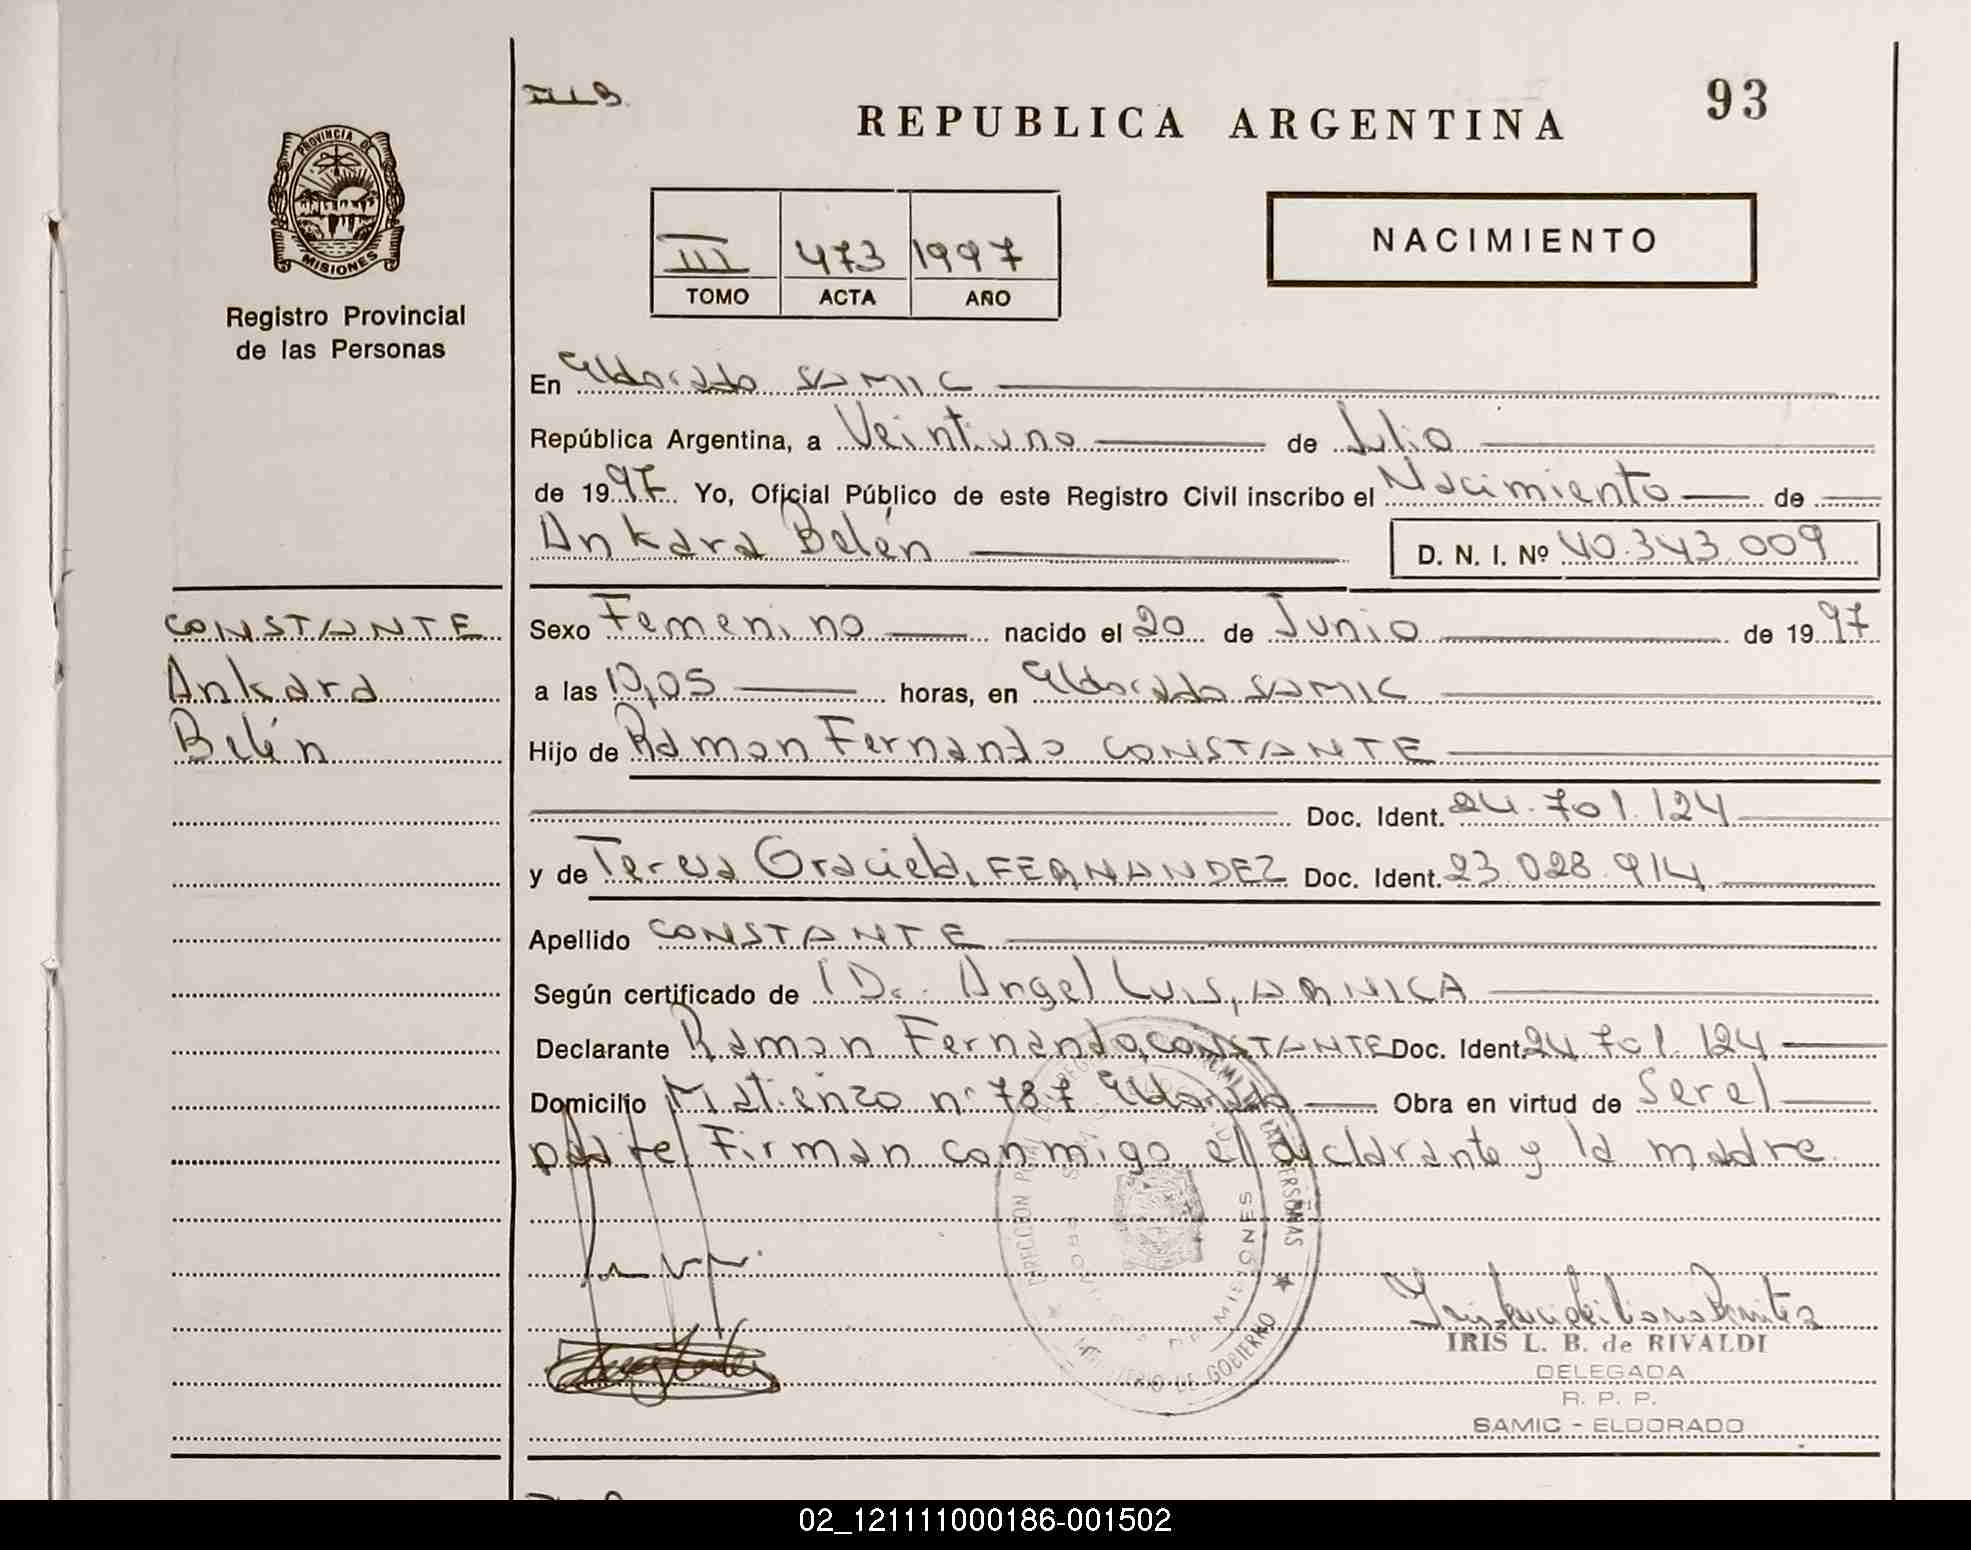 93
REPUBLICA ARGENTINA
PROVINCIA DE
MISIONES
Registro Provincial
de las Personas
III 473 1997
TOMO ACTA AÑO
NACIMIENTO
En Eldorado SAMIC
República Argentina, a Veintiuno de Julio
de 1997 Yo, Oficial Público de este Registro Civil inscribo el Nacimiento de
Ankara Belén
D. N. I. Nº 40.343.009
CONSTANTE
Ankara
Belén
Sexo Femenino nacido el 20 de Junio de 1997
a las 10,05 horas, en Eldorado SAMIC
Hijo de Ramon Fernando CONSTANTE
Doc. Ident. 24.701.124
y de Teresa Graciela, FERNANDEZ Doc. Ident. 23.028.914
Apellido CONSTANTE
Según certificado de Dr. Angel Luis, ARNICA
Declarante Ramon Fernando, CONSTANTE Doc. Ident. 24.701.124
Domicilio Matienzo nº 787 Eldorado Obra en virtud de Ser el
padre Firman conmigo el declarante y la madre.
MISIONES
GOBIERNO
IRIS L. B. de RIVALDI
DELEGADA
R. P. P.
SAMIC - ELDORADO
02_121111000186-001502